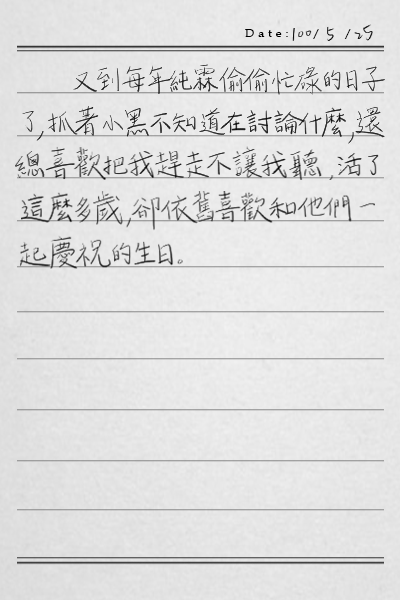 Date:100/5/25
又到每年純霖偷偷忙碌的日子
了,抓著小黑不知道在討論什麼,還
總喜歡把我趕走不讓我聽,活了
這麼多歲,卻依舊喜歡和他們一
起慶祝的生日。